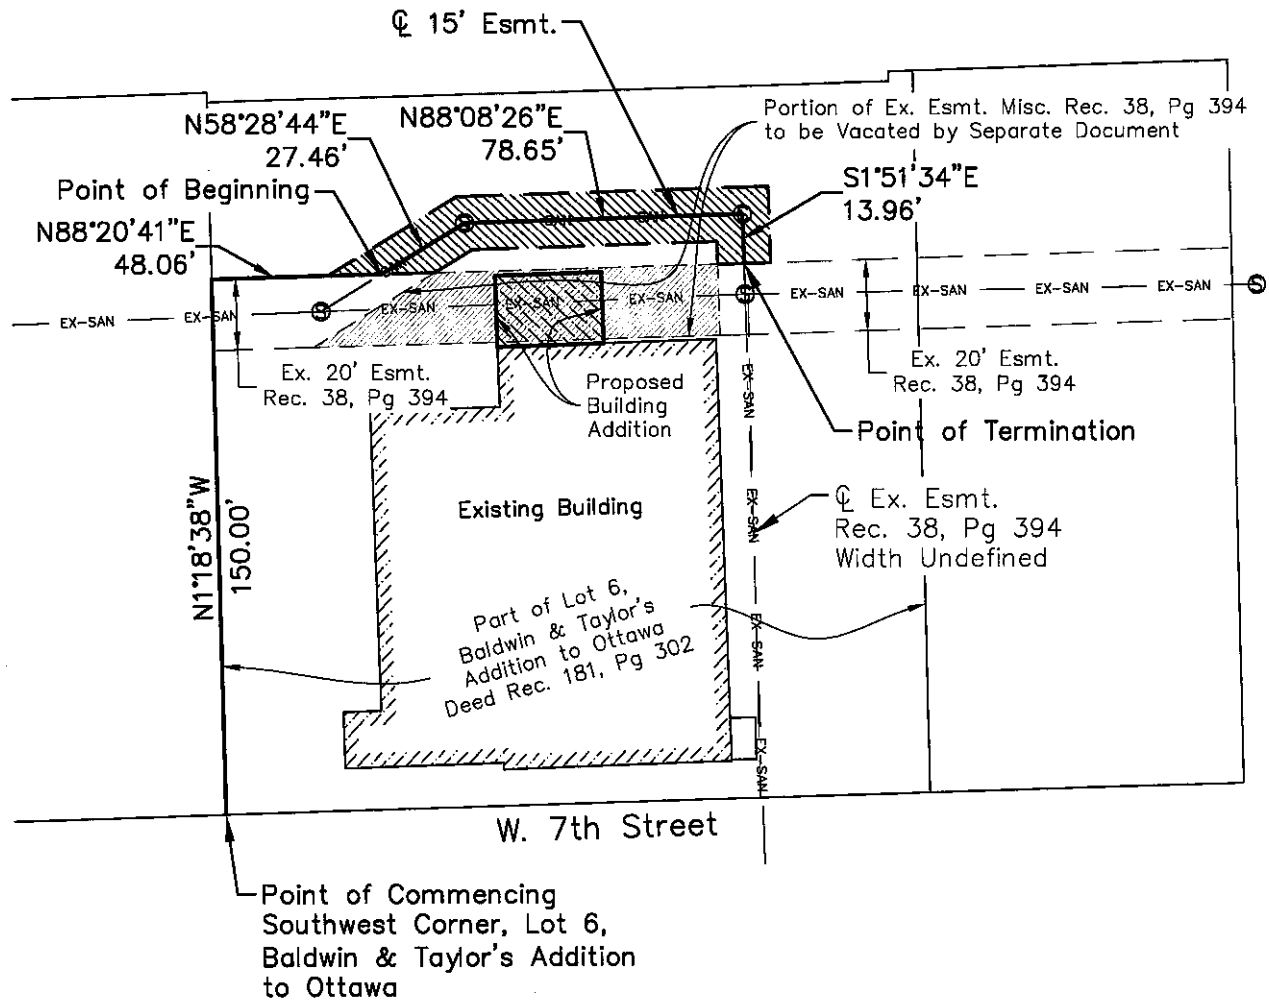 ℄ 15' Esmt.
N58°28'44"E
27.46'
N88°08'26"E
78.65'
Portion of Ex. Esmt. Misc. Rec. 38, Pg 394
to be Vacated by Separate Document
Point of Beginning
S1°51'34"E
13.96'
N88°20'41"E
48.06'
SAN
SAN
S
S
EX-SAN
EX-SAN
S
EX-SAN
EX-SAN
EX-SAN
EX-SAN
S
EX-SAN
EX-SAN
EX-SAN
EX-SAN
S
Ex. 20' Esmt.
Rec. 38, Pg 394
Proposed
Building
Addition
Ex. 20' Esmt.
Rec. 38, Pg 394
EX-SAN
Point of Termination
N1°18'38"W
150.00'
Existing Building
EX-SAN
℄ Ex. Esmt.
Rec. 38, Pg 394
Width Undefined
Part of Lot 6,
Baldwin & Taylor's
Addition to Ottawa
Deed Rec. 181, Pg 302
EX-SAN
EX-SAN
W. 7th Street
Point of Commencing
Southwest Corner, Lot 6,
Baldwin & Taylor's Addition
to Ottawa